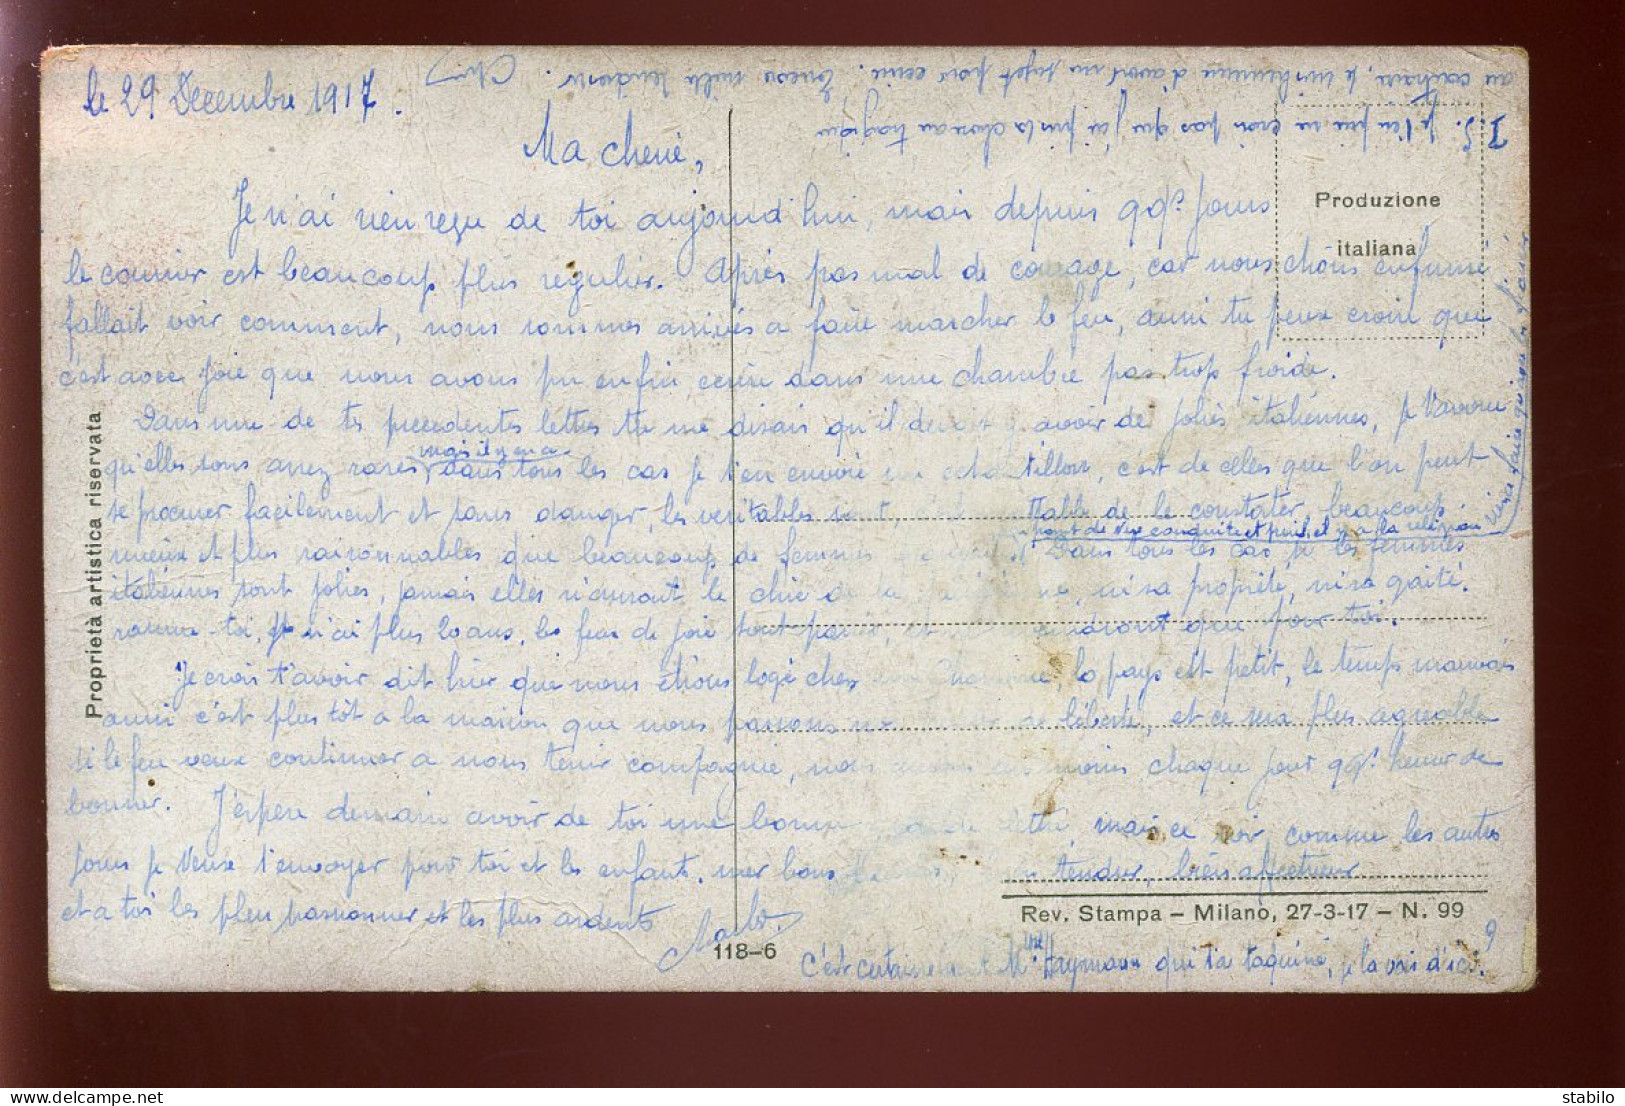 le 29 Decembre 1917.
Ma cherie,
Je n'ai rien reçu de toi aujourd'hui, mais depuis qqs. jours
le courrier est beaucoup plus regulier. Après pas mal de courage, car nous étions enfumé
fallait voir comment, nous sommes arrivés a faire marcher le feu, aussi tu peux croire que
c'est avec joie que nous avons pu enfin ecrire dans une chambre pas trop froide.
Dans une de tes precedentes lettres tu me disais qu'il devait y avoir de jolies italiennes, je t'avoue
qu'elles sont assez rares mais il y en a dans tous les cas je t'en envoie un echantillon, c'est de celles que l'on peut
se procurer facilement et sans danger, les veritables sont, table de le constater, beaucoup
mieux et plus raisonnables que beaucoup de femmes
point de vue conquite et puis il y a la religion
Dans tous les cas, si les femmes
italiennes sont jolies, jamais elles n'auront le chic de la, ni sa propreté, ni sa gaité.
toi, je n'ai plus 20 ans, les feux de joie sont passés, et que pour toi.
Je crois t'avoir dit hier que nous étions logé chez, le pays est petit, le temps mauvais
aussi c'est plus tôt a la maison que nous passons liberte, et ce sera plus agreable
si le feu veux continuer a nous tenir compagnie, nous moins chaque jour qqs. heures de
bonheur. J'espere demain avoir de toi une bonne lettre, mais ce soir comme les autres
jours je veux t'envoyer pour toi et les enfants, mes bons, bien tendres, bien affectueux
et a toi les plus passionnés et les plus ardents
C'est certainement Mme Haymann qui t'a taquiné, je la vois d'ici.
vera faire qu'avec la fiancée
P.S. Je t'en prie ne crois pas que j'ai pris la chose au tragique
au contraire, je suis heureux d'avoir un sujet pour ecrire. Encore mille tendresses.
Proprietà artistica riservata
Produzione
italiana
118-6
Rev. Stampa – Milano, 27-3-17 – N. 99
stabilo